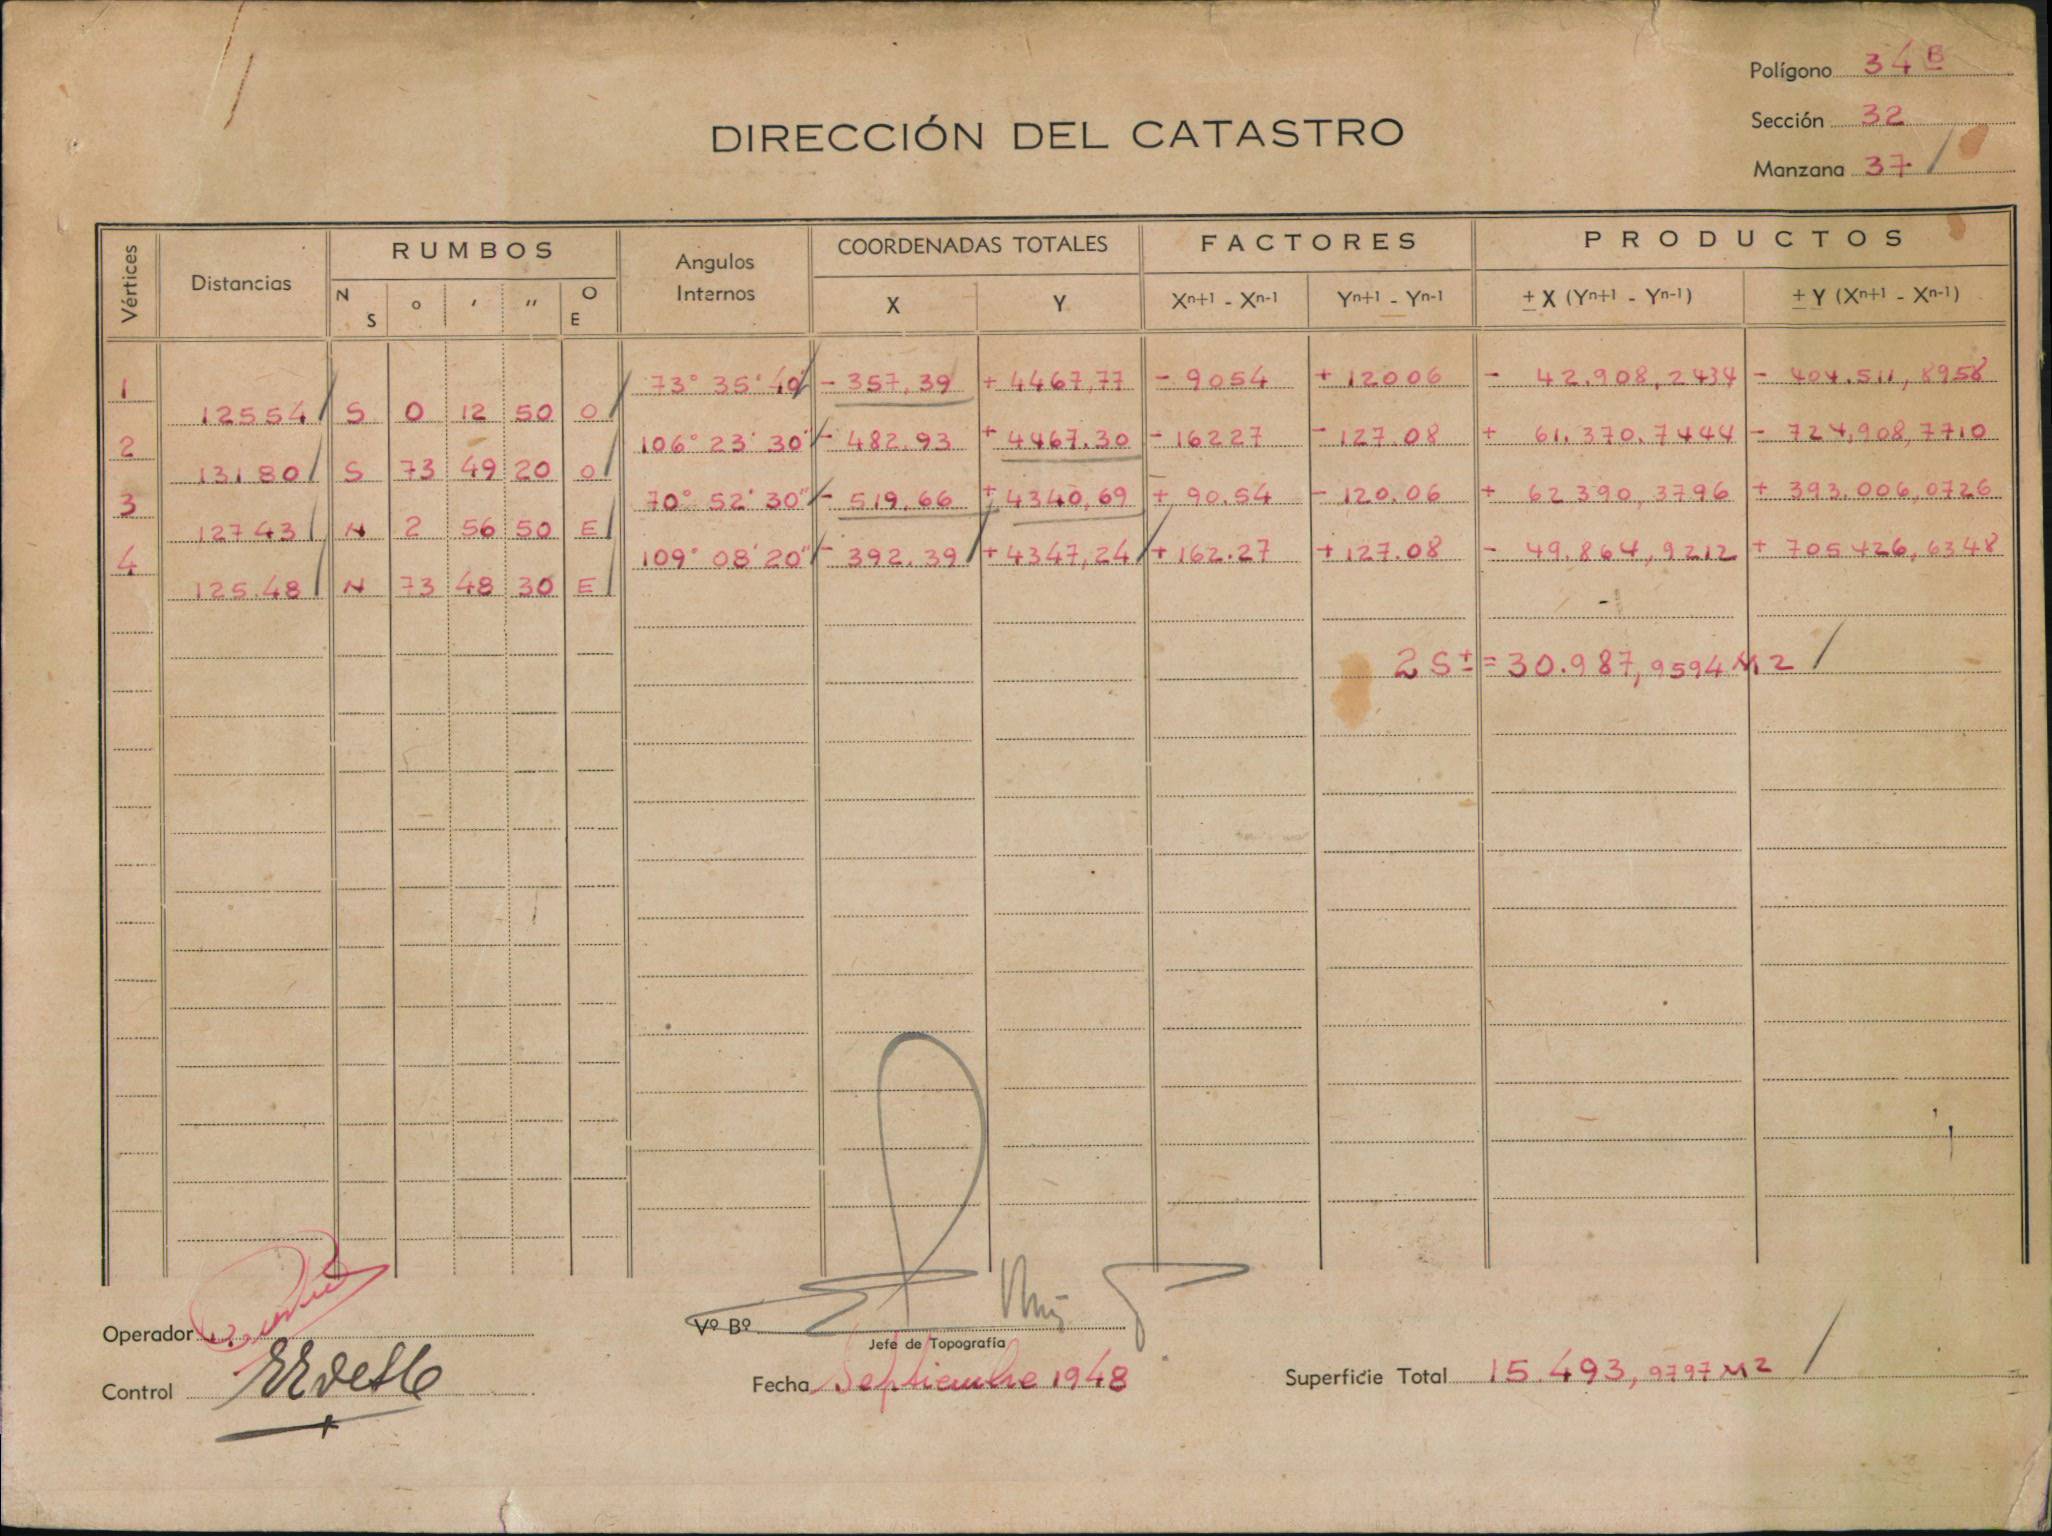 Polígono 34 B
Sección 32
Manzana 37
DIRECCIÓN DEL CATASTRO
Vértices Distancias RUMBOS Angulos Internos COORDENADAS TOTALES FACTORES PRODUCTOS
N S ° ′ ″ O E X Y Xn+1 - Xn-1 Yn+1 - Yn-1 ± X (Yn+1 - Yn-1) ± Y (Xn+1 - Xn-1)
1 73° 35' 40" - 357,39 + 4467,77 - 9054 + 12006 - 42.908,2434 - 404.511,8958
12554 S 0 12 50 O
2 106° 23' 30" - 482.93 + 4467.30 - 16227 - 127.08 + 61.370.7444 - 724,908,7710
13180 S 73 49 20 O
3 70° 52' 30" - 519,66 + 4340,69 + 90.54 - 120.06 + 62390,3796 + 393.006,0726
12743 N 2 56 50 E
4 109° 08' 20" - 392.39 + 4347,24 + 162.27 + 127.08 - 49.864,9212 + 705426,6348
125.48 N 73 48 30 E
2 S ± = 30.987,9594 M2
Operador
Vº Bº
Jefe de Topografía
Control
Fecha Septiembre 1948
Superficie Total 15.493,9797 M2